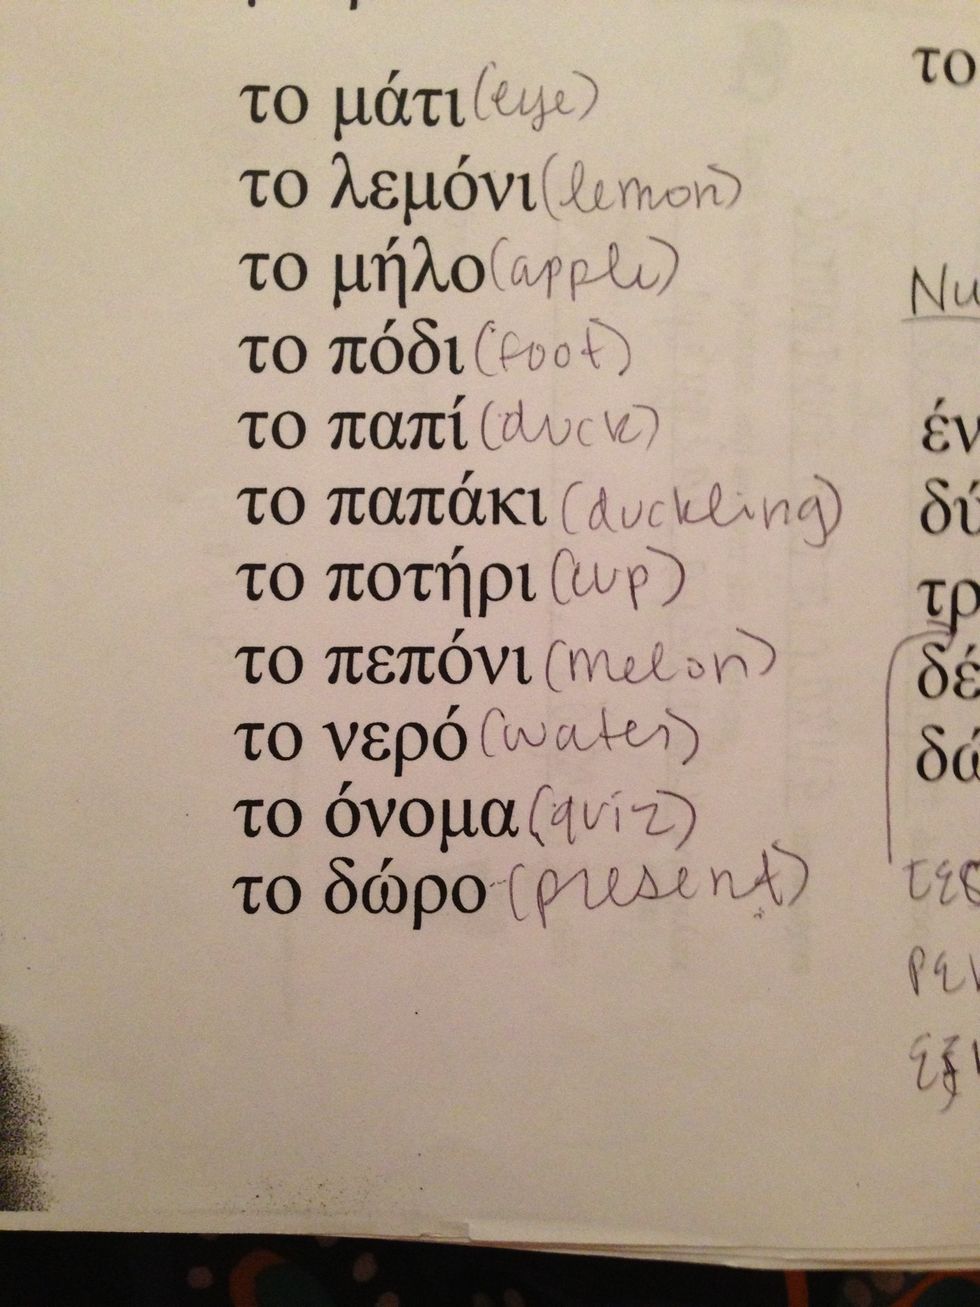 το μάτι (eye)
το λεμόνι (lemon)
το μήλο (apple)
το πόδι (foot)
το παπί (duck)
το παπάκι (duckling)
το ποτήρι (cup)
το πεπόνι (melon)
το νερό (water)
το όνομα (quiz)
το δώρο (present)
το
Nu
έν
δύ
τρ
δέ
δώ